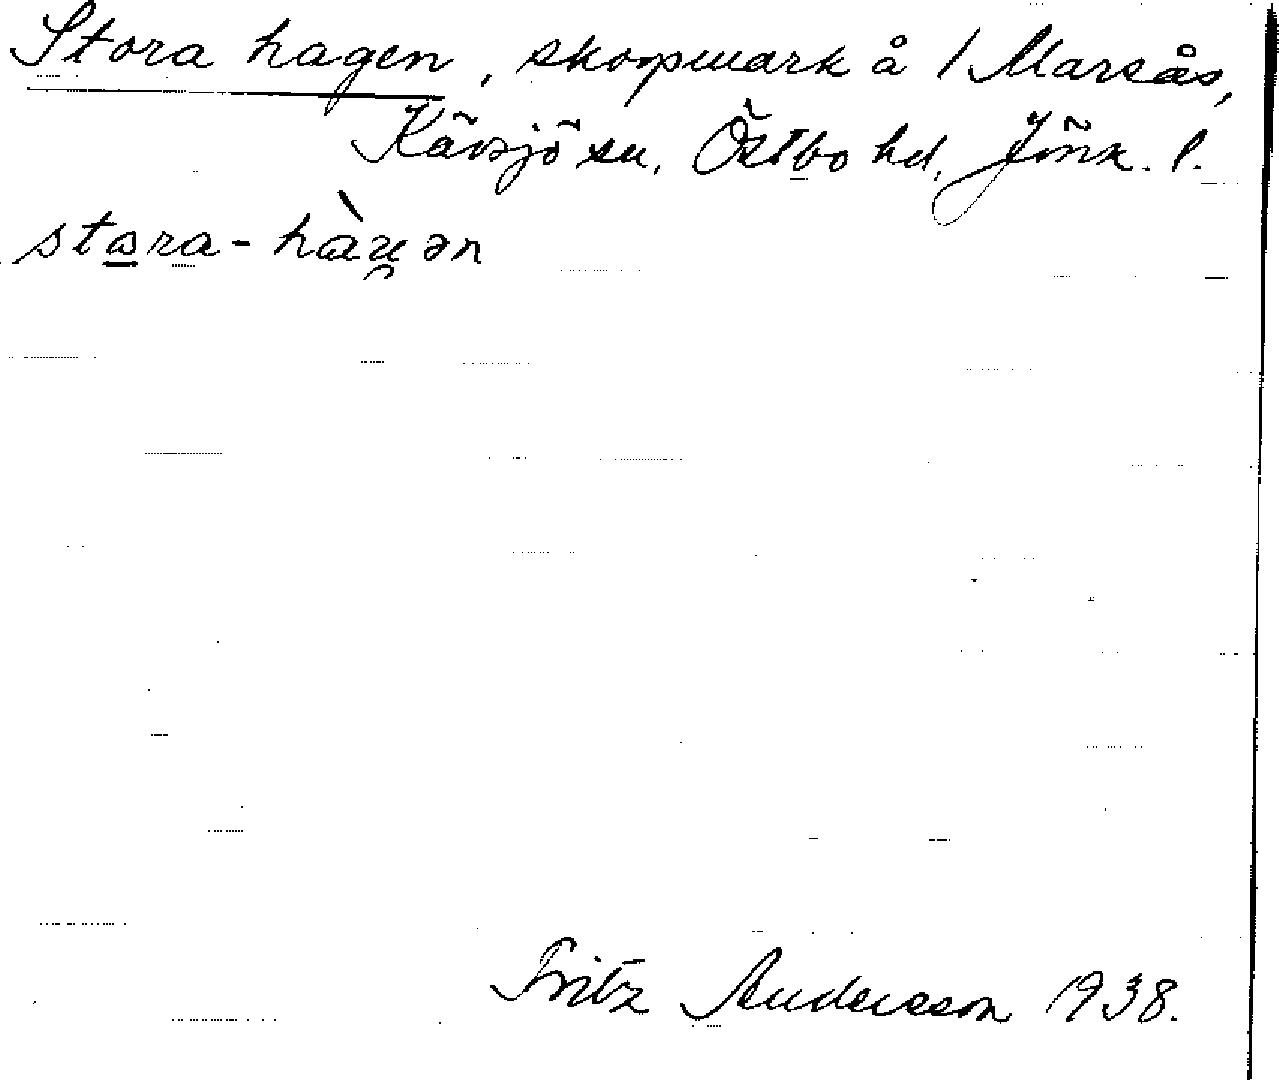 Stora hagen, skogsmark å 1 Marsås,
Kävsjö sn. Östbo hd. Jönk. l.
stara-hàu̯ən
Fritz Andersson 1938.